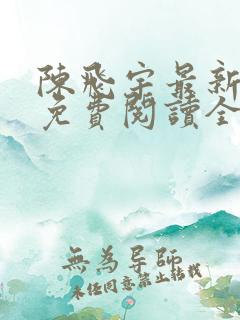 陳飛宇最新
免費閱讀全
無為导師
未經同意禁止轉載